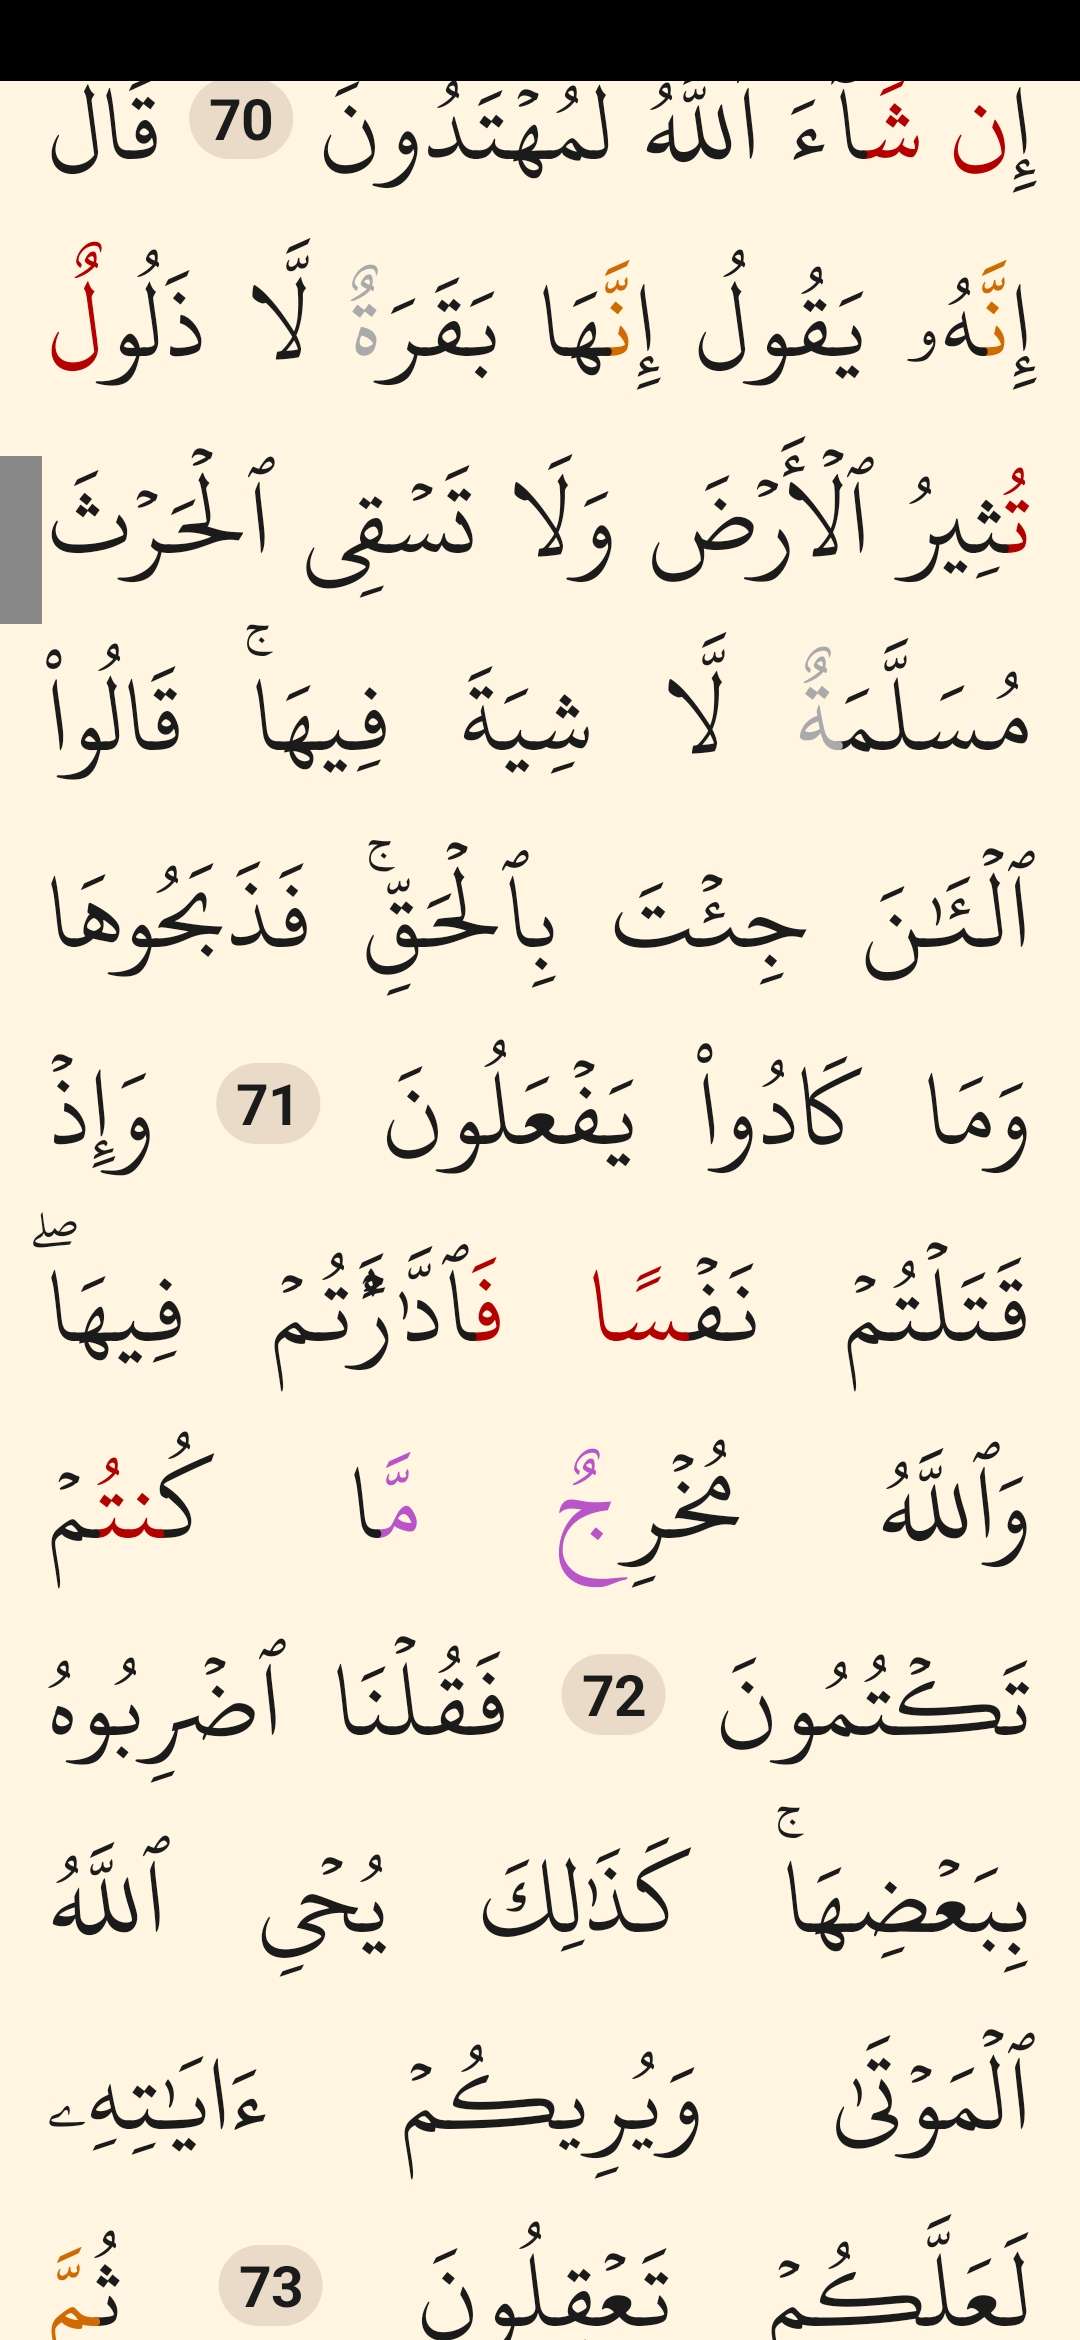 إِن شَآءَ ٱللَّهُ لَمُهْتَدُونَ 70 قَالَ
إِنَّهُۥ يَقُولُ إِنَّهَا بَقَرَةٌ لَّا ذَلُولٌ
تُثِيرُ ٱلْأَرْضَ وَلَا تَسْقِى ٱلْحَرْثَ
مُسَلَّمَةٌ لَّا شِيَةَ فِيهَا ۚ قَالُوا۟
ٱلْـَٔـٰنَ جِئْتَ بِٱلْحَقِّ ۚ فَذَبَحُوهَا
وَمَا كَادُوا۟ يَفْعَلُونَ 71 وَإِذْ
قَتَلْتُمْ نَفْسًا فَٱدَّٰرَْٰٔتُمْ فِيهَا ۖ
وَٱللَّهُ مُخْرِجٌ مَّا كُنتُمْ
تَكْتُمُونَ 72 فَقُلْنَا ٱضْرِبُوهُ
بِبَعْضِهَا ۚ كَذَٰلِكَ يُحْىِ ٱللَّهُ
ٱلْمَوْتَىٰ وَيُرِيكُمْ ءَايَـٰتِهِۦ
لَعَلَّكُمْ تَعْقِلُونَ 73 ثُمَّ